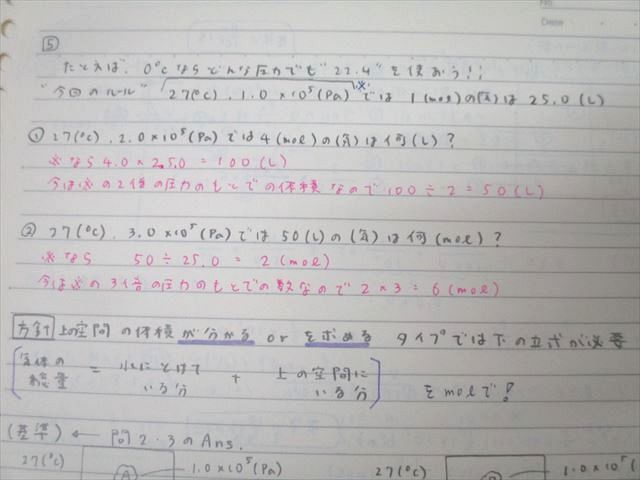 No.
Date
⑤
たとえば、0℃ならどんな圧力でも"22.4"を使おう!!
"今回のルール" 27(℃)、1.0×10⁵(Pa)では1(mol)の(気)は25.0(L) ※
① 27(℃)、2.0×10⁵(Pa)では4(mol)の(気)は何(L)?
※なら4.0×25.0=100(L)
今は※の2倍の圧力のもとでの体積なので100÷2=50(L)
② 27(℃)、3.0×10⁵(Pa)では50(L)の(気)は何(mol)?
※なら 50÷25.0=2(mol)
今は※の3倍の圧力のもとでの数なので2×3=6(mol)
方針 上の空間の体積が分かるor を求めるタイプでは下の立式が必要
[気体の総量 = 水にとけている分 + 上の空間にいる分] をmolで!
(基準) ← 問2・3のAns.
27(℃) A 1.0×10⁵(Pa) 27(℃) 1.0×10⁵(